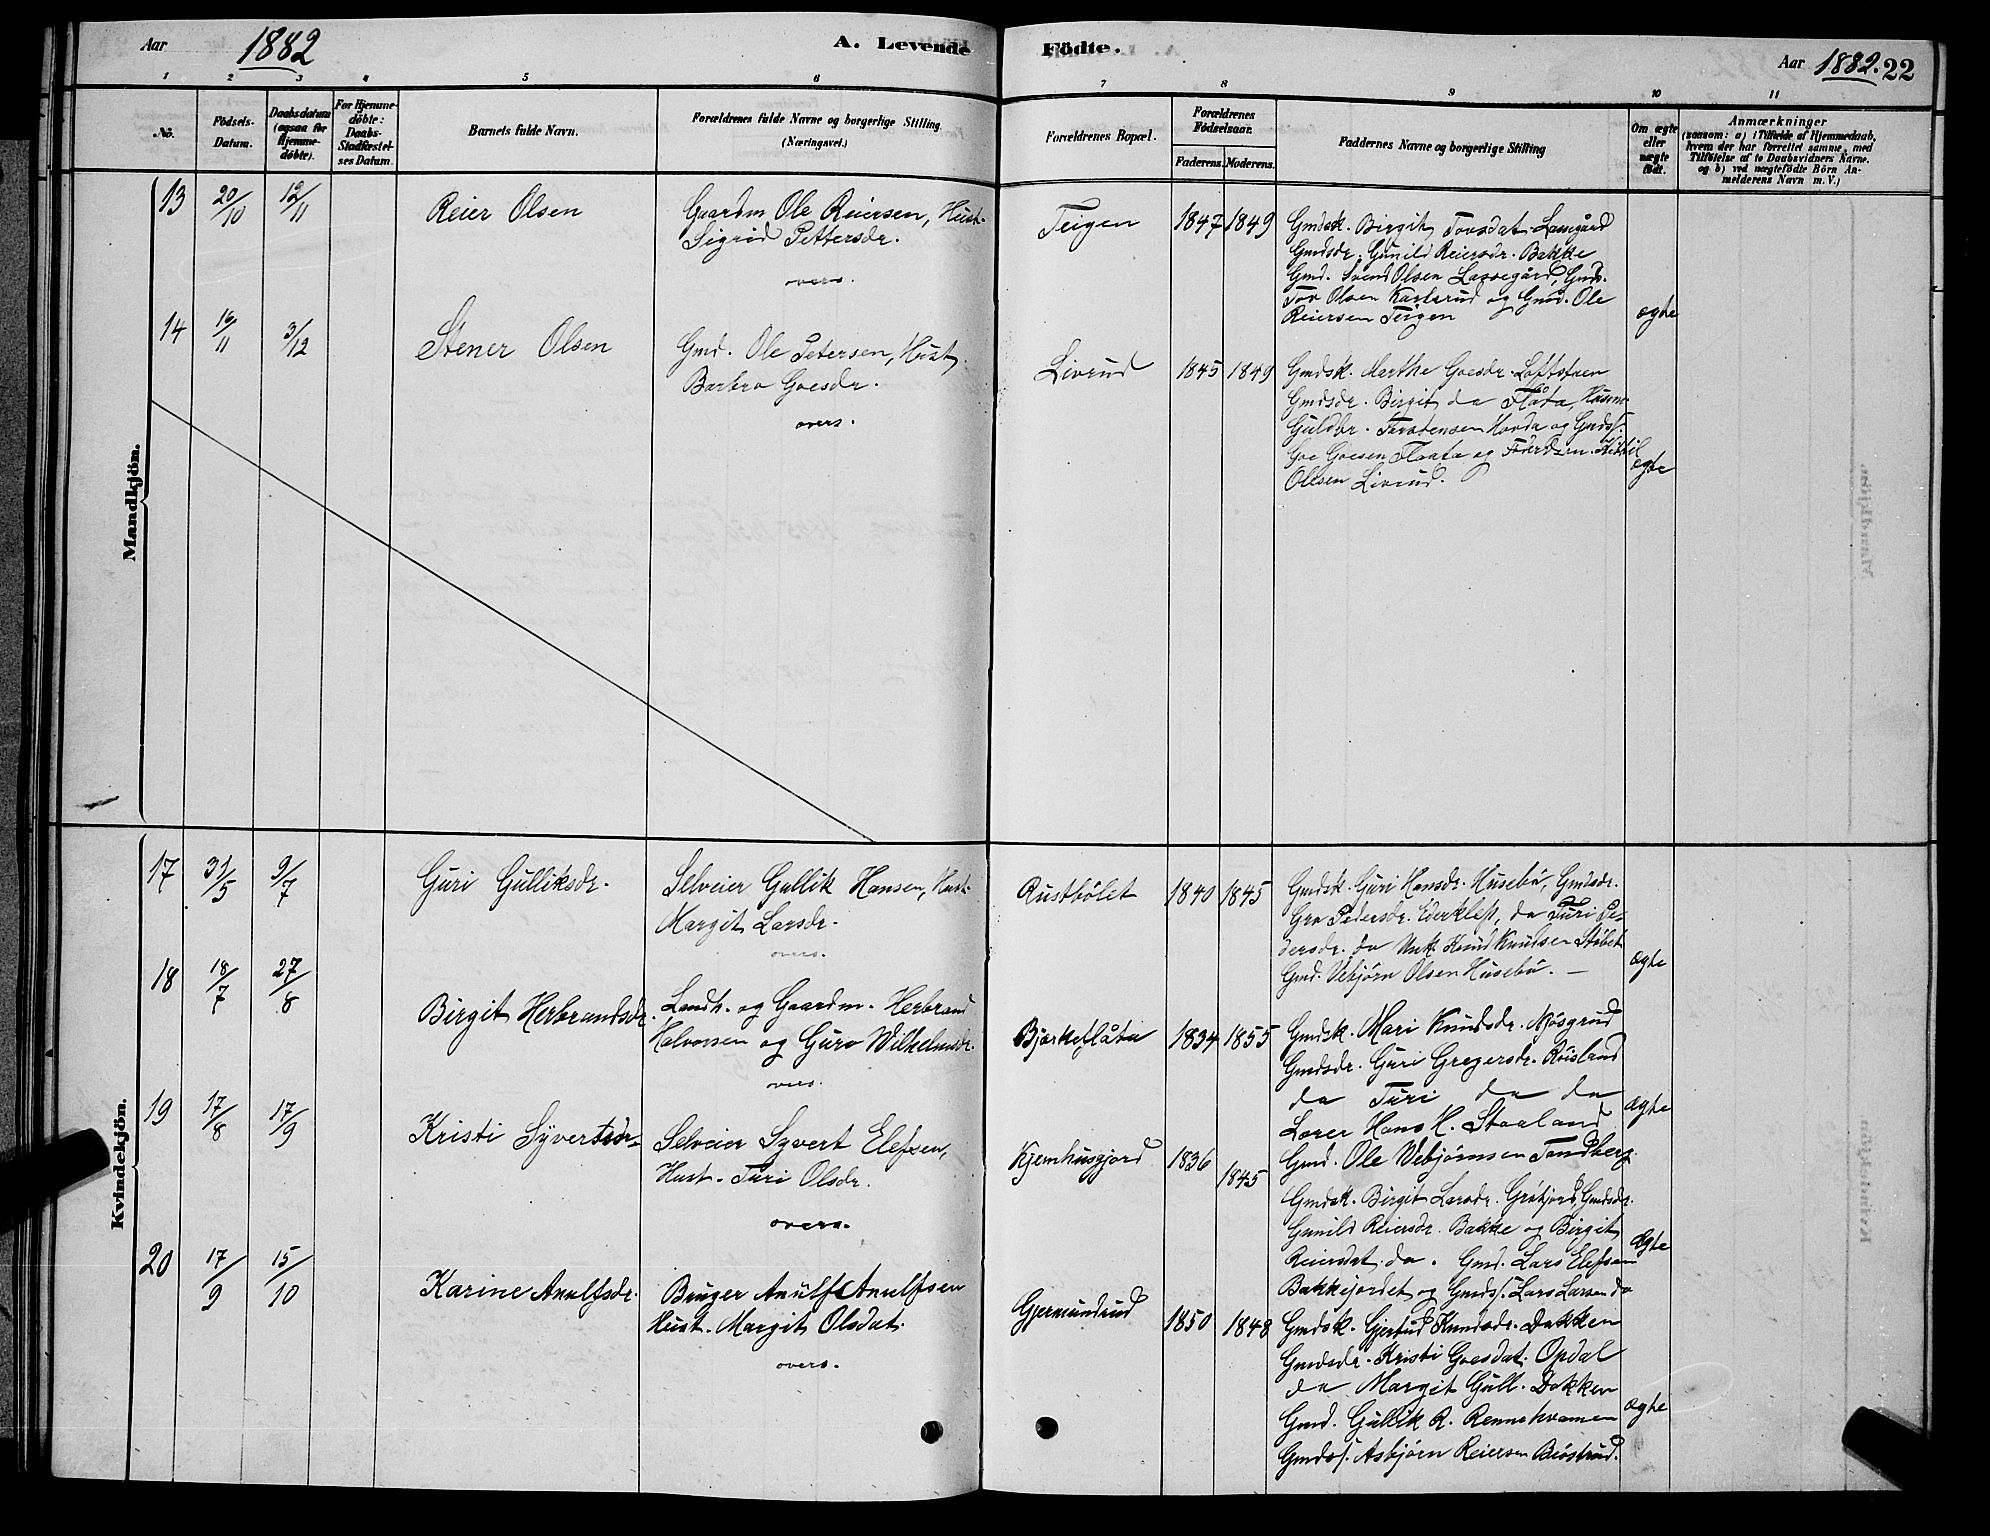 Aar 1882
A. Levende Födte.
Aar 1882. 22
1 2 3 4 5 6 7 8 9 10 11
No.
Födsels-
Datum.
Daabsdatum
(ogsaa for
Hjemme-
döbte).
For Hjemme-
döbte:
Daabs-
Stadfæstel-
ses Datum.
Barnets fulde Navn.
Forældrenes fulde Navne og borgerlige Stilling
(Næringsvei.)
Forældrenes Bopæl.
Forældrenes
Födselsaar.
Faderens. Moderens.
Faddernes Navne og borgerlige Stilling
Om ægte
eller
uægte
födt.
Anmærkninger
(saasom: a) i Tilfælde af Hjemmedaab,
hvem der har forrettet samme, med
Tilföielse af to Daabsvidners Navne.
og b) ved uægtefödte Börn An-
melderens Navn m. V.)
Mandkjön.
13 20/10 12/11 Reier Olsen
Gaardm Ole Reiersen, Hust.
Sigrid Pettersdr.
overs.
Teigen 1847 1849
Gmdsk. Birgit Tovsdat. Lassegård
Gmdsdr. Gunild Reiersdr. Bakke
Gmd. Svend Olsen Lassegård, Gmds.
Tov Olsen Karlsrud og Gmd. Ole
Reiersen Teigen
ægte
14 16/11 3/12 Stener Olsen
Gmd. Ole Petersen, Hust.
Barbro Goesdr.
overs.
Livrud 1845 1849
Gmdsk. Marthe Goesdr. Loftstuen
Gmdsdr. Birgit do Flåta, Husm.
Guldbr. Torstensen Hovda og Gmdss.
Goe Goesen Flaata og Kittil
Olsen Livrud.
ægte
Kvindekjön.
17 31/5 9/7 Guri Gulliksdr.
Selveier Gullik Hansen, Hust.
Margit Larsdr.
overs.
Rustbölet 1840 1845
Gmdsk. Guri Hansdr. Husebö, Gmdsdr.
Gro Pedersdr. Ederklep, do Turi Pe-
dersdr. do Unk. Knud Knudsen Stöbet
Gmd. Vebjörn Olsen Husebö. —
ægte
18 18/7 27/8 Birgit Herbrandsdr.
Landh. og Gaardm. Herbrand
Halvorsen og Guro Wilhelmsdr.
overs.
Bjørkeflåta 1834 1855
Gmdsk. Mari Knudsdr. Mösgrud
Gmdsdr. Guri Gregersdr. Röisland
do Turi do do
Lærer Hans H. Staaland
Gmd. Ole Vebjörnsen Tandberg
ægte
19 17/8 17/9 Kristi Syvertsdr.
Selveier Syvert Elefsen,
Hust. Turi Olsdr.
overs.
Kjemhusgjord 1836 1845
Gmdsk. Birgit Larsdr. Gröfjord, Gmdsdr.
Gunild Reiersdr. Bakke og Birgit
Reiersdat. do. Gmd. Lars Elefsen
Bakkejordet og Gmdss. Lars Larsen do
ægte
20 17/9 15/10 Karine Anulfsdr.
Bruger Anulf Anulfsen
Hust. Margit Olsdat.
overs.
Gjermundrud 1850 1848
Gmdsk. Gjertrud Knudsdr. Dokken
Gmdsdr. Kristi Goesdat. Opdal
do Margit Gull. Dokken
Gmd. Gullik R. Rennehvamen
Gmdss. Asbjörn Reiersen
ægte